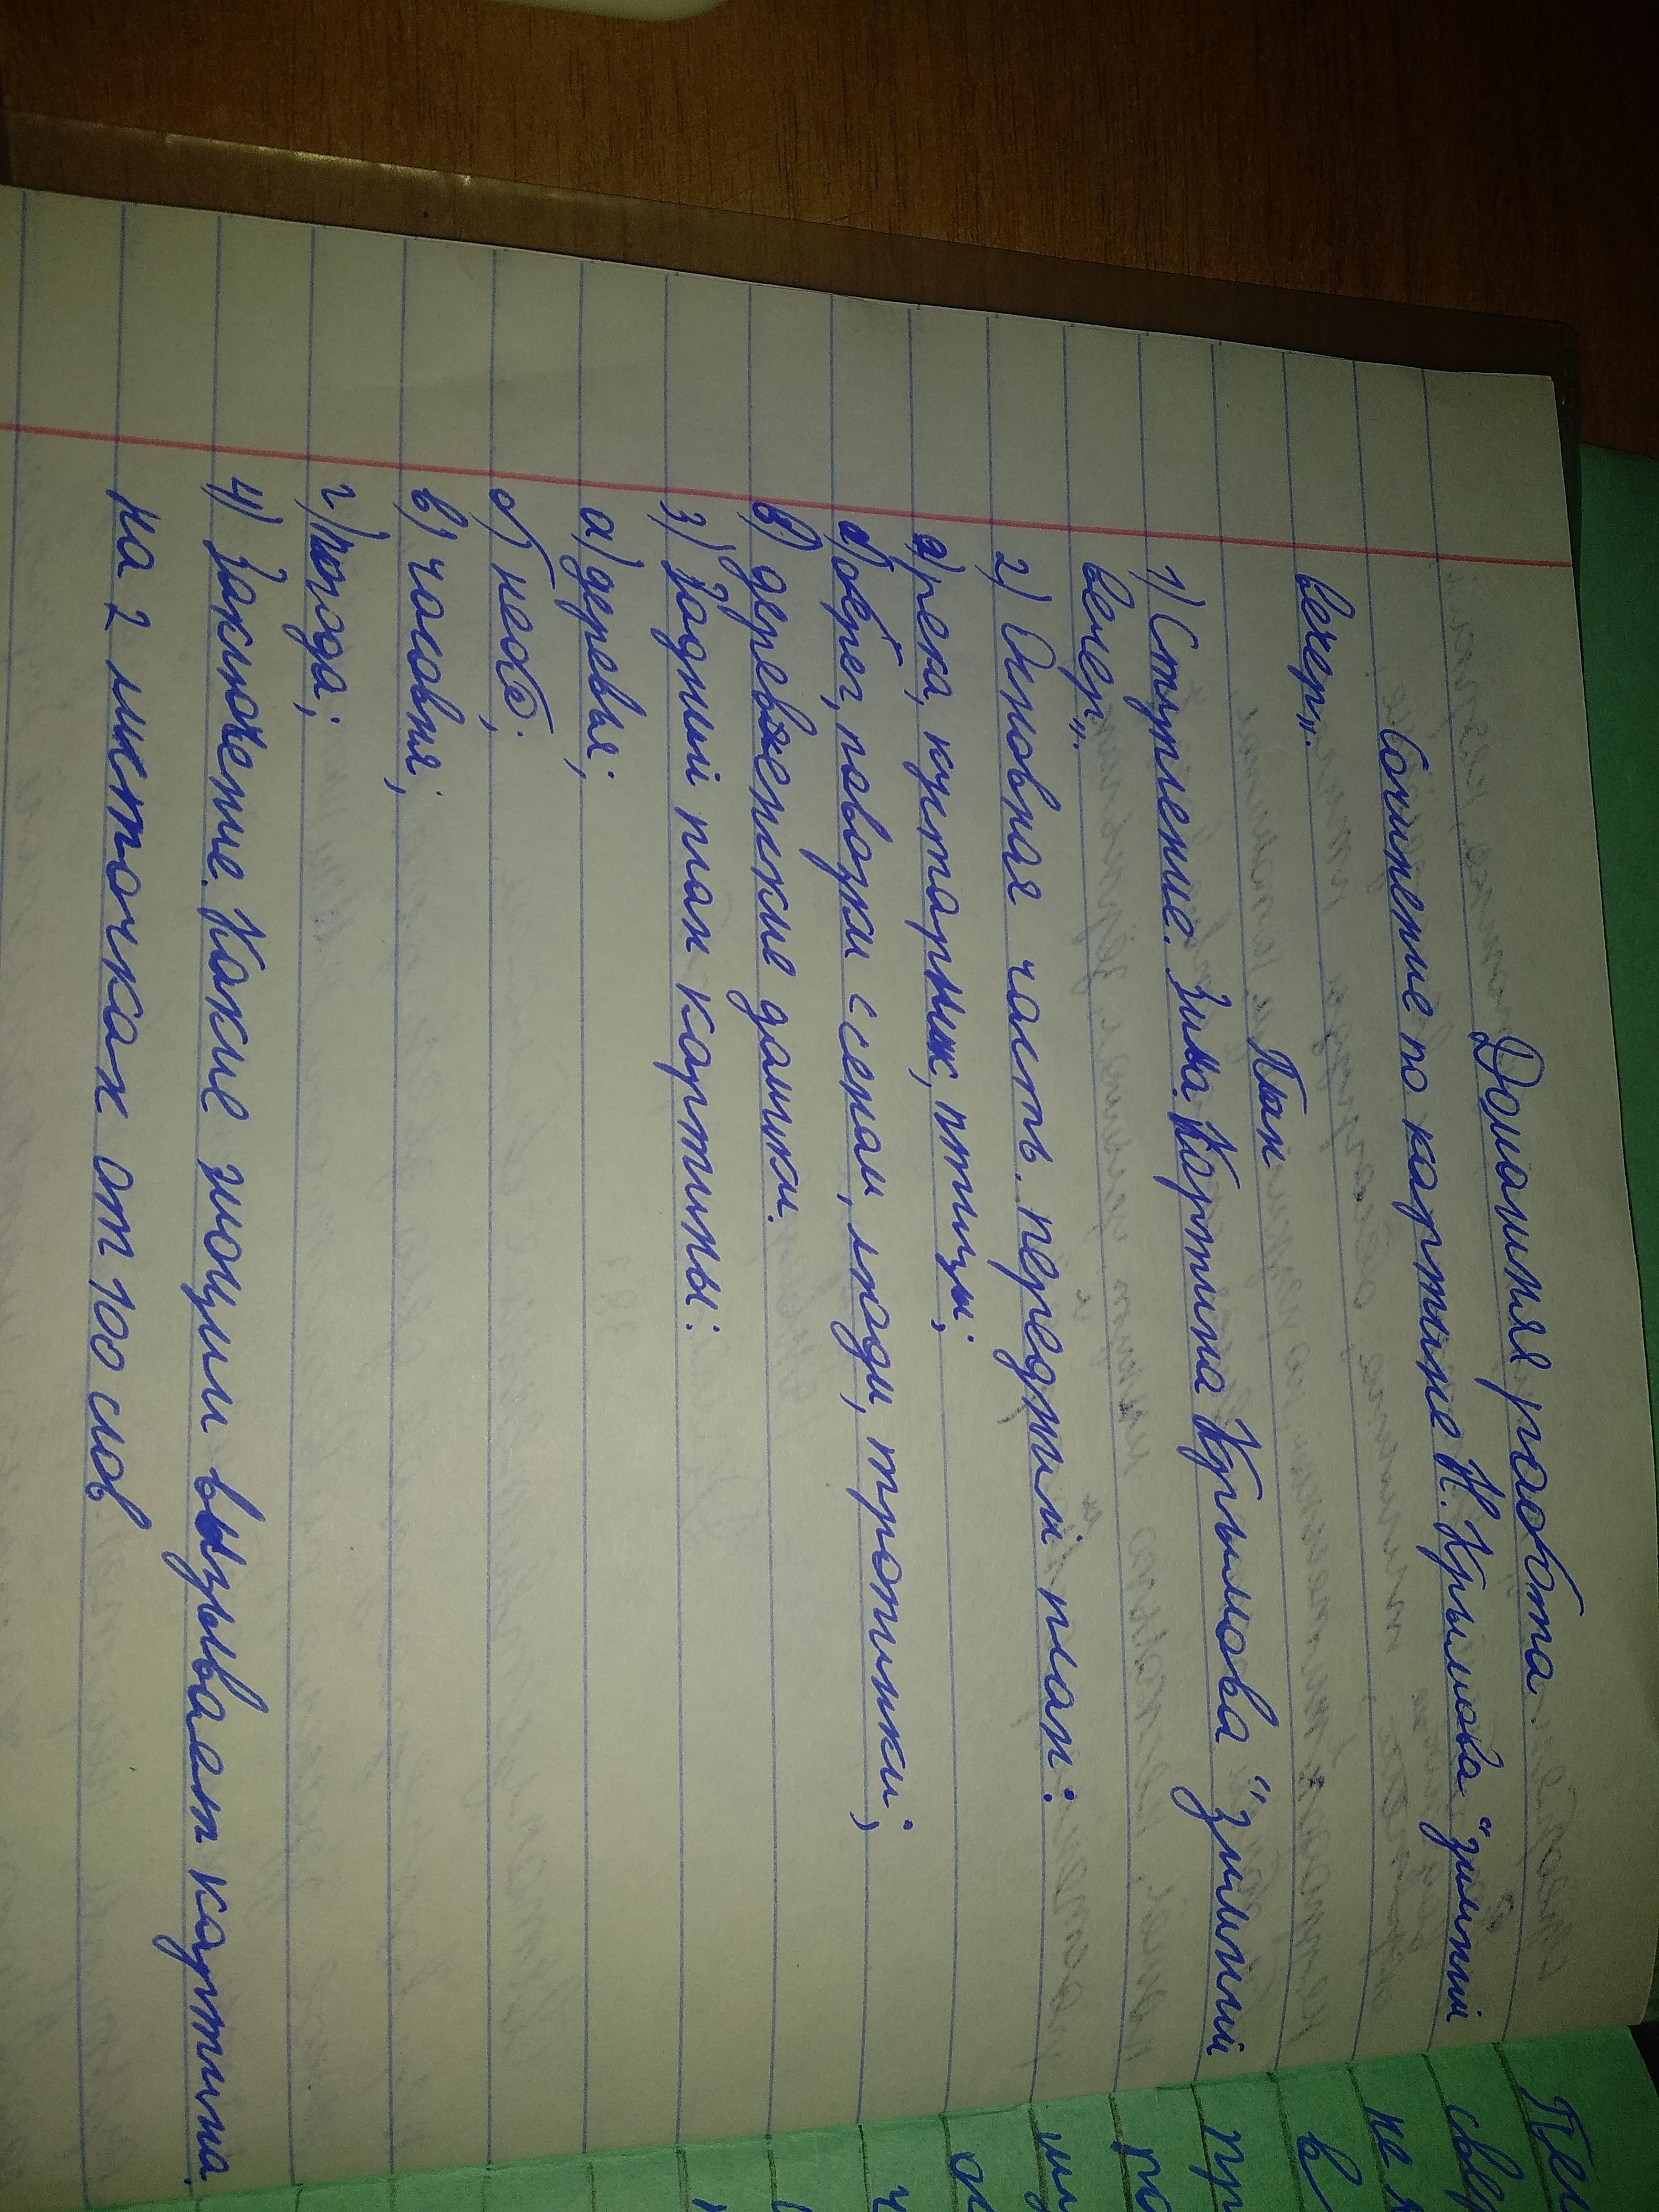 Домашняя работа
Сочинение по картине Н. Крымова "Зимний
вечер".
План
1) Ступление. Зима. Картина Крымова "Зимний
вечер".
2) Основная часть. передний план:
а) река, кустарник, птицы;
б) обрег, повозки с сеном, люди, тропинки;
в) деревенские домики.
3) Задний план картины:
а) деревья;
б) небо;
в) часовня;
г) погода;
4) Заключение. Какие эмоции вызывает картина.
на 2 листочках от 100 слов